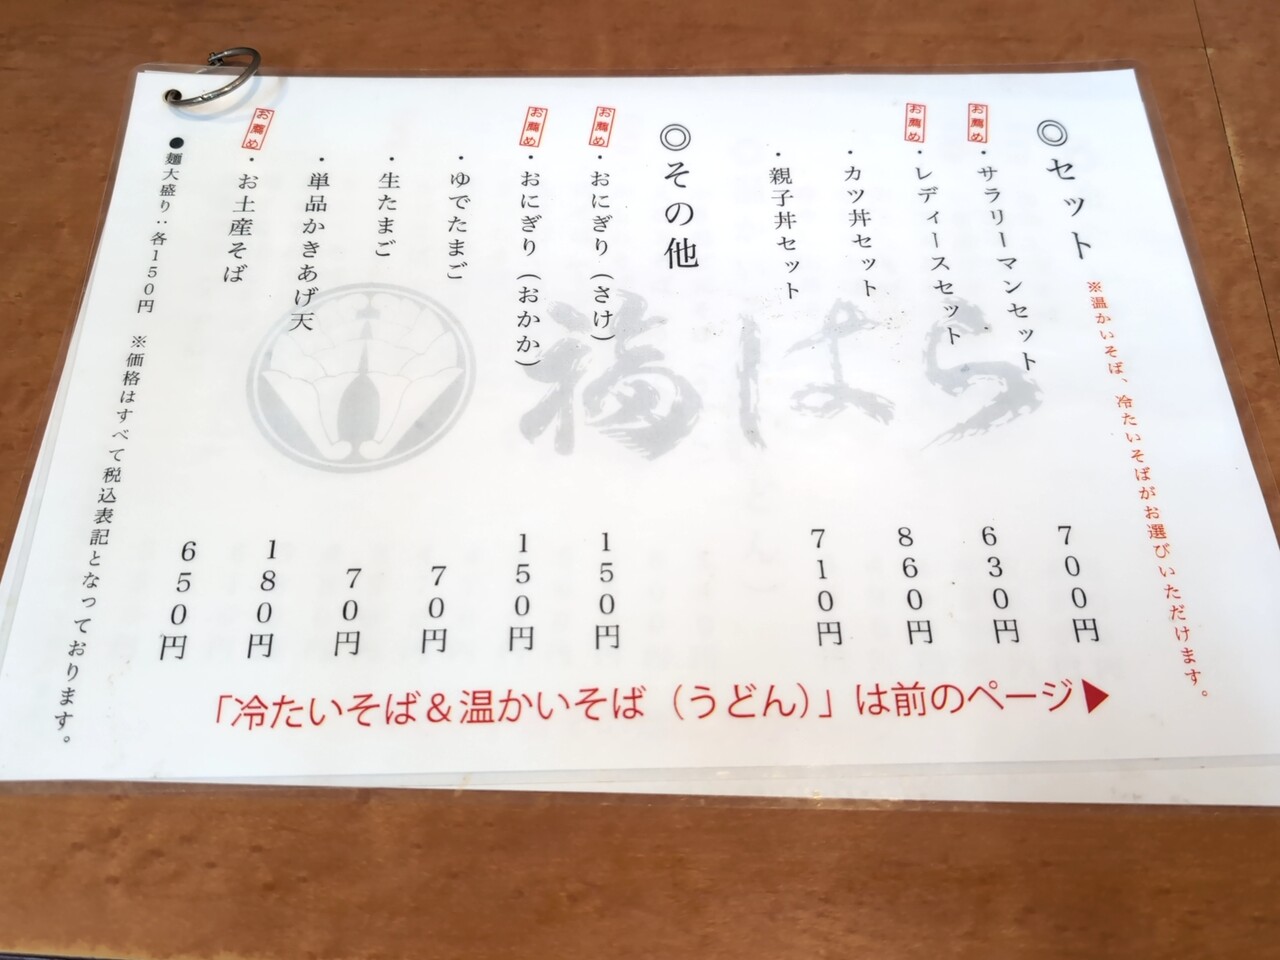 ◎セット ※温かいそば、冷たいそばがお選びいただけます。
お薦め ・サラリーマンセット 700円
お薦め ・レディースセット 630円
・カツ丼セット 860円
・親子丼セット 710円
◎その他
お薦め ・おにぎり(さけ) 150円
お薦め ・おにぎり(おかか) 150円
・ゆでたまご 70円
・生たまご 70円
・単品かきあげ天 180円
お薦め ・お土産そば 650円
●麺大盛り：各150円 ※価格はすべて税込表記となっております。
福はら
「冷たいそば＆温かいそば（うどん）」は前のページ▶